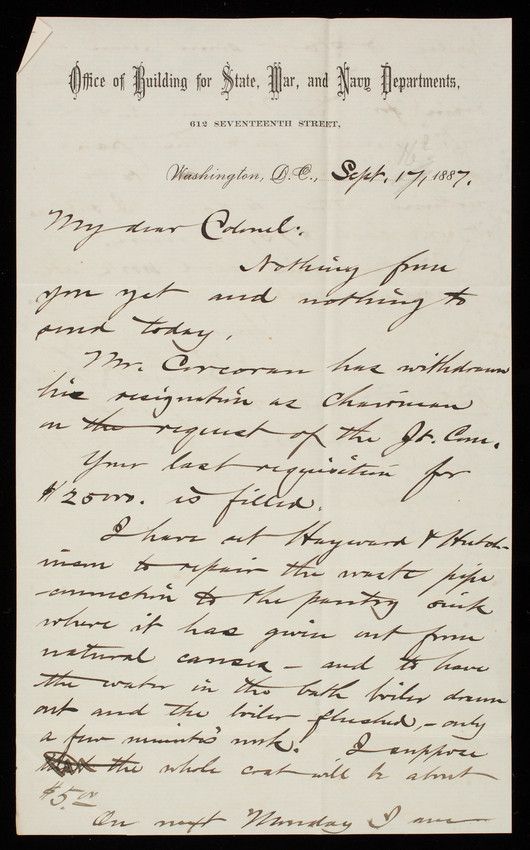 Office of Building for State, War, and Navy Departments,
612 SEVENTEENTH STREET,
Washington, D.C., Sept. 17, 1887.
My dear Colonel:
Nothing from
you yet and nothing to
send today.
Mr. Corcoran has withdrawn
his resignation as Chairman
on the request of the Jt. Com.
Your last requisition for
$2500. is filled.
I have set Hayward & Hutch-
inson to repair the waste pipe
connection to the pantry sink
where it has given out from
natural causes – and to have
the water in the bath boiler drawn
out and the boiler flushed, – only
a few minutes' work. I suppose
the whole cost will be about
$5.00
On next Monday I am